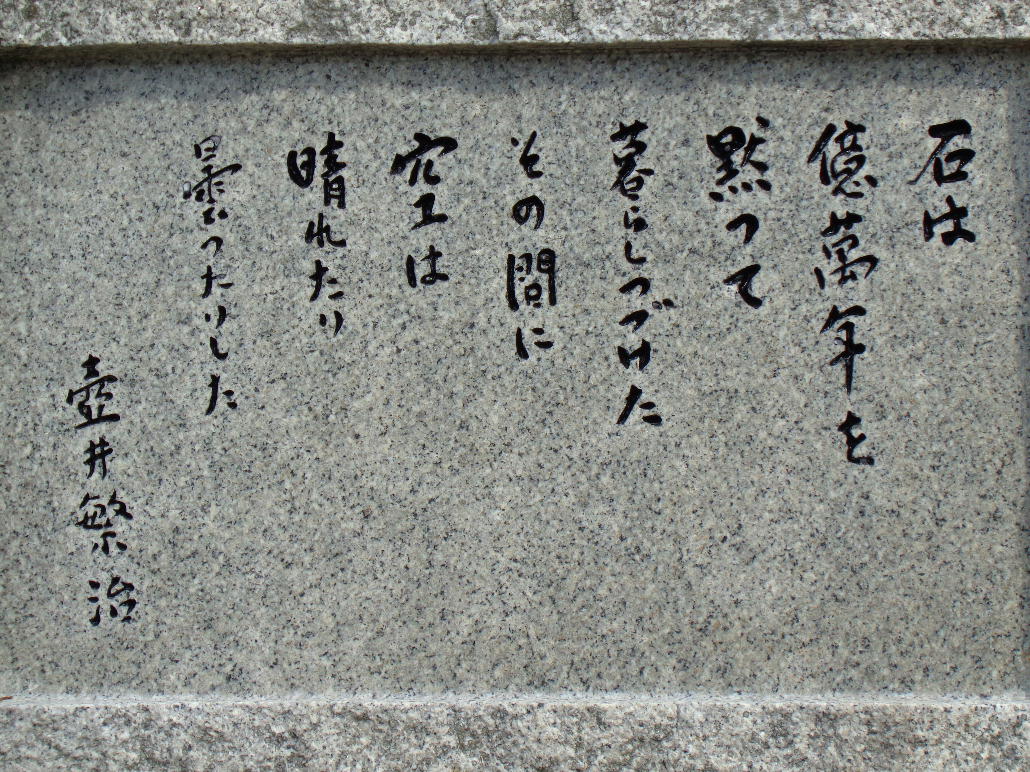 石は
億萬年を
黙つて
暮らしつづけた
その間に
空は
晴れたり
曇つたりした
壺井繁治